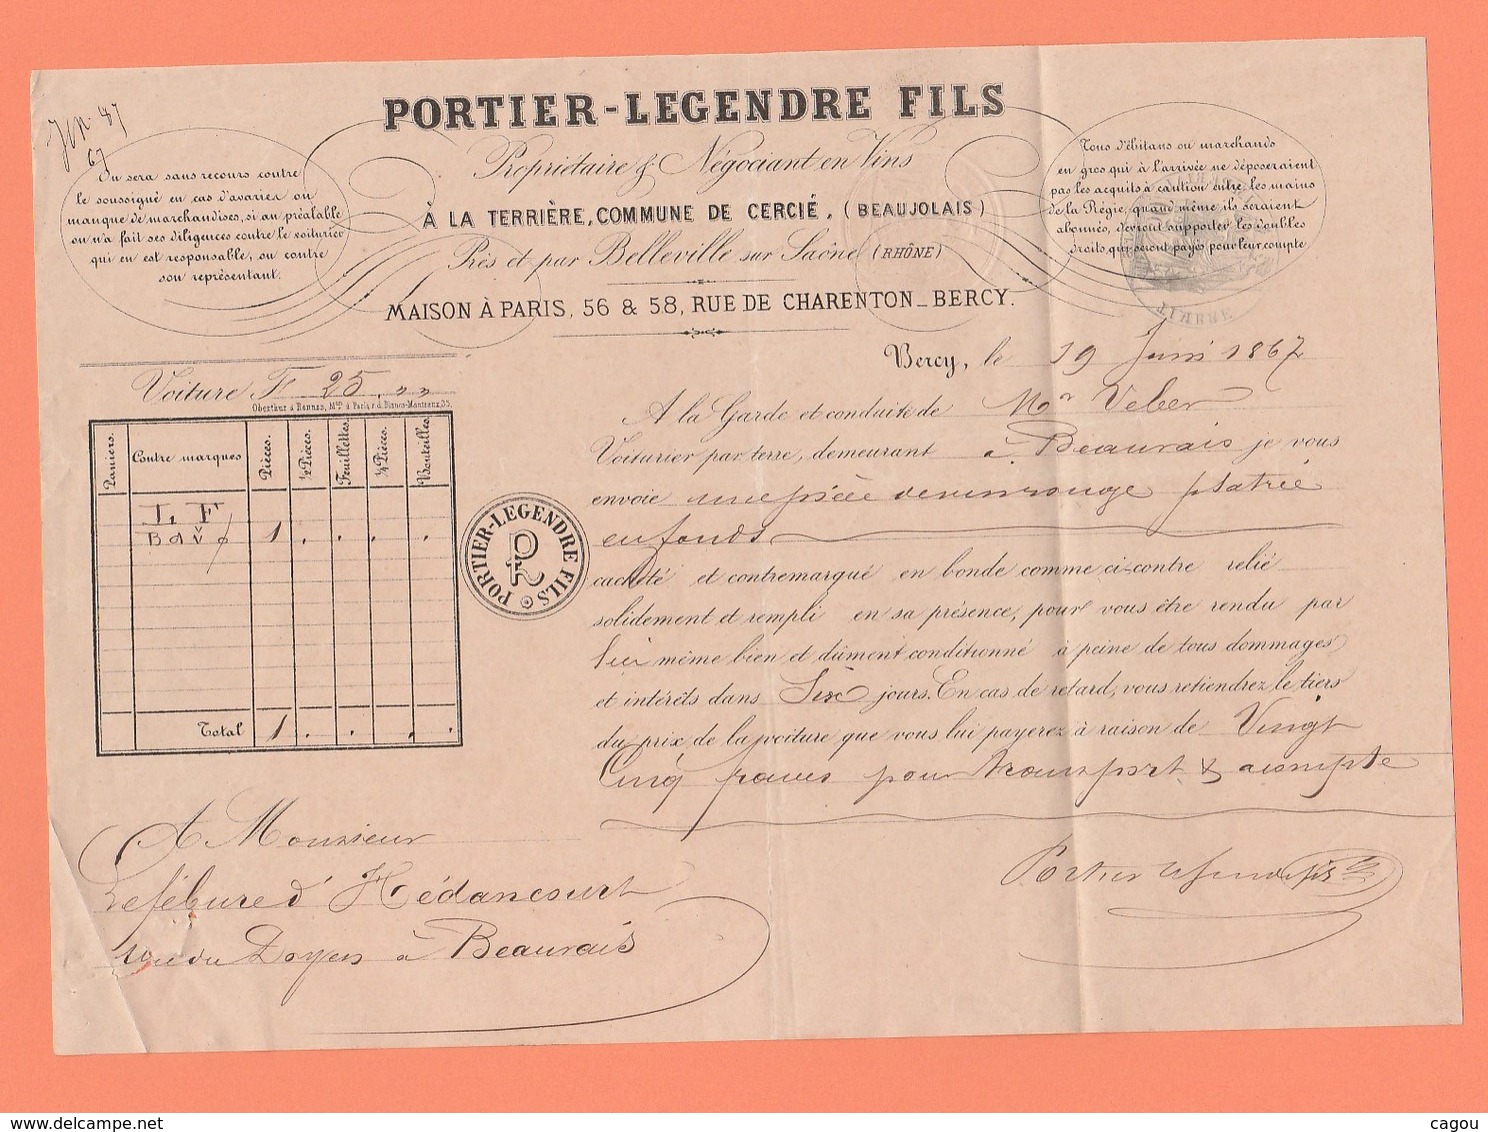 PORTIER-LEGENDRE FILS
Propriétaire & Négociant en Vins
À LA TERRIÈRE, COMMUNE DE CERCIÉ, (BEAUJOLAIS)
Près et par Belleville sur Saône (RHÔNE)
MAISON À PARIS, 56 & 58, RUE DE CHARENTON_BERCY.
67
On sera sans recours contre
le soussigné en cas d'avaries ou
manque de marchandises, si au préalable
on n'a fait ses diligences contre le voiturier
qui en est responsable, ou contre
son représentant.
Tous débitans ou marchands
en gros qui à l'arrivée ne déposeraient
pas les acquits à caution entre les mains
de la Régie, quand même ils seraient
abonnés, devront supporter les doubles
droits, qui seront payés pour leur compte
Bercy, le 19 Juin 1867
Voiture F 25 . " "
Oberthur à Rennes, Mson à Paris r.d. Blancs-Manteaux, 35.
Paniers. Contre marques Pièces. ½ Pièces. Feuillettes. ¼ Pièces. Bouteilles
J. F
1 . . . .
Total 1 . . . .
PORTIER-LEGENDRE FILS
A la Garde et conduite de Mr Veber
Voiturier par terre, demeurant à Beauvais je vous
envoie une pièce de vin rouge platrée
en fonds
cacheté et contremarqué en bonde comme ci-contre relié
solidement et rempli en sa présence, pour vous être rendu par
lui même bien et dûment conditionné à peine de tous dommages
et intérêts dans Six jours. En cas de retard, vous retiendrez le tiers
du prix de la voiture que vous lui payerez à raison de Vingt
Cinq francs pour transport & acompte
A Monsieur
Lefébure d'Hédancourt
rue du Doyen à Beauvais
Portier Legendre fils
cagou